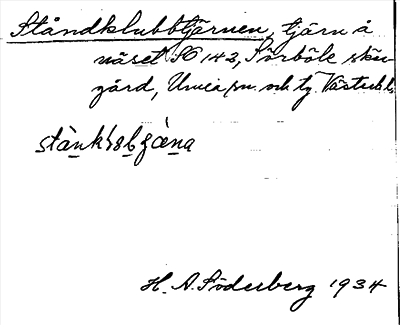 Ståndklubbtjärnen, tjärn å
näset SO 142, Sörböle skär-
gård, Umeå sn. och tg. Västerb. l.
H. A. Söderberg 1934